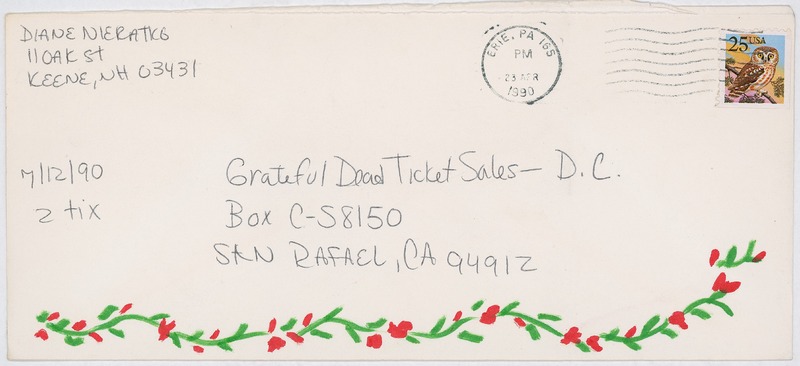 DIANE NIERATKO
11 OAK ST
KEENE, NH 03431
ERIE, PA 165
PM
23 APR
1990
25 USA
7/12/90
2 tix
Grateful Dead Ticket Sales— D.C.
Box C-S8150
SAN RAFAEL, CA 94912